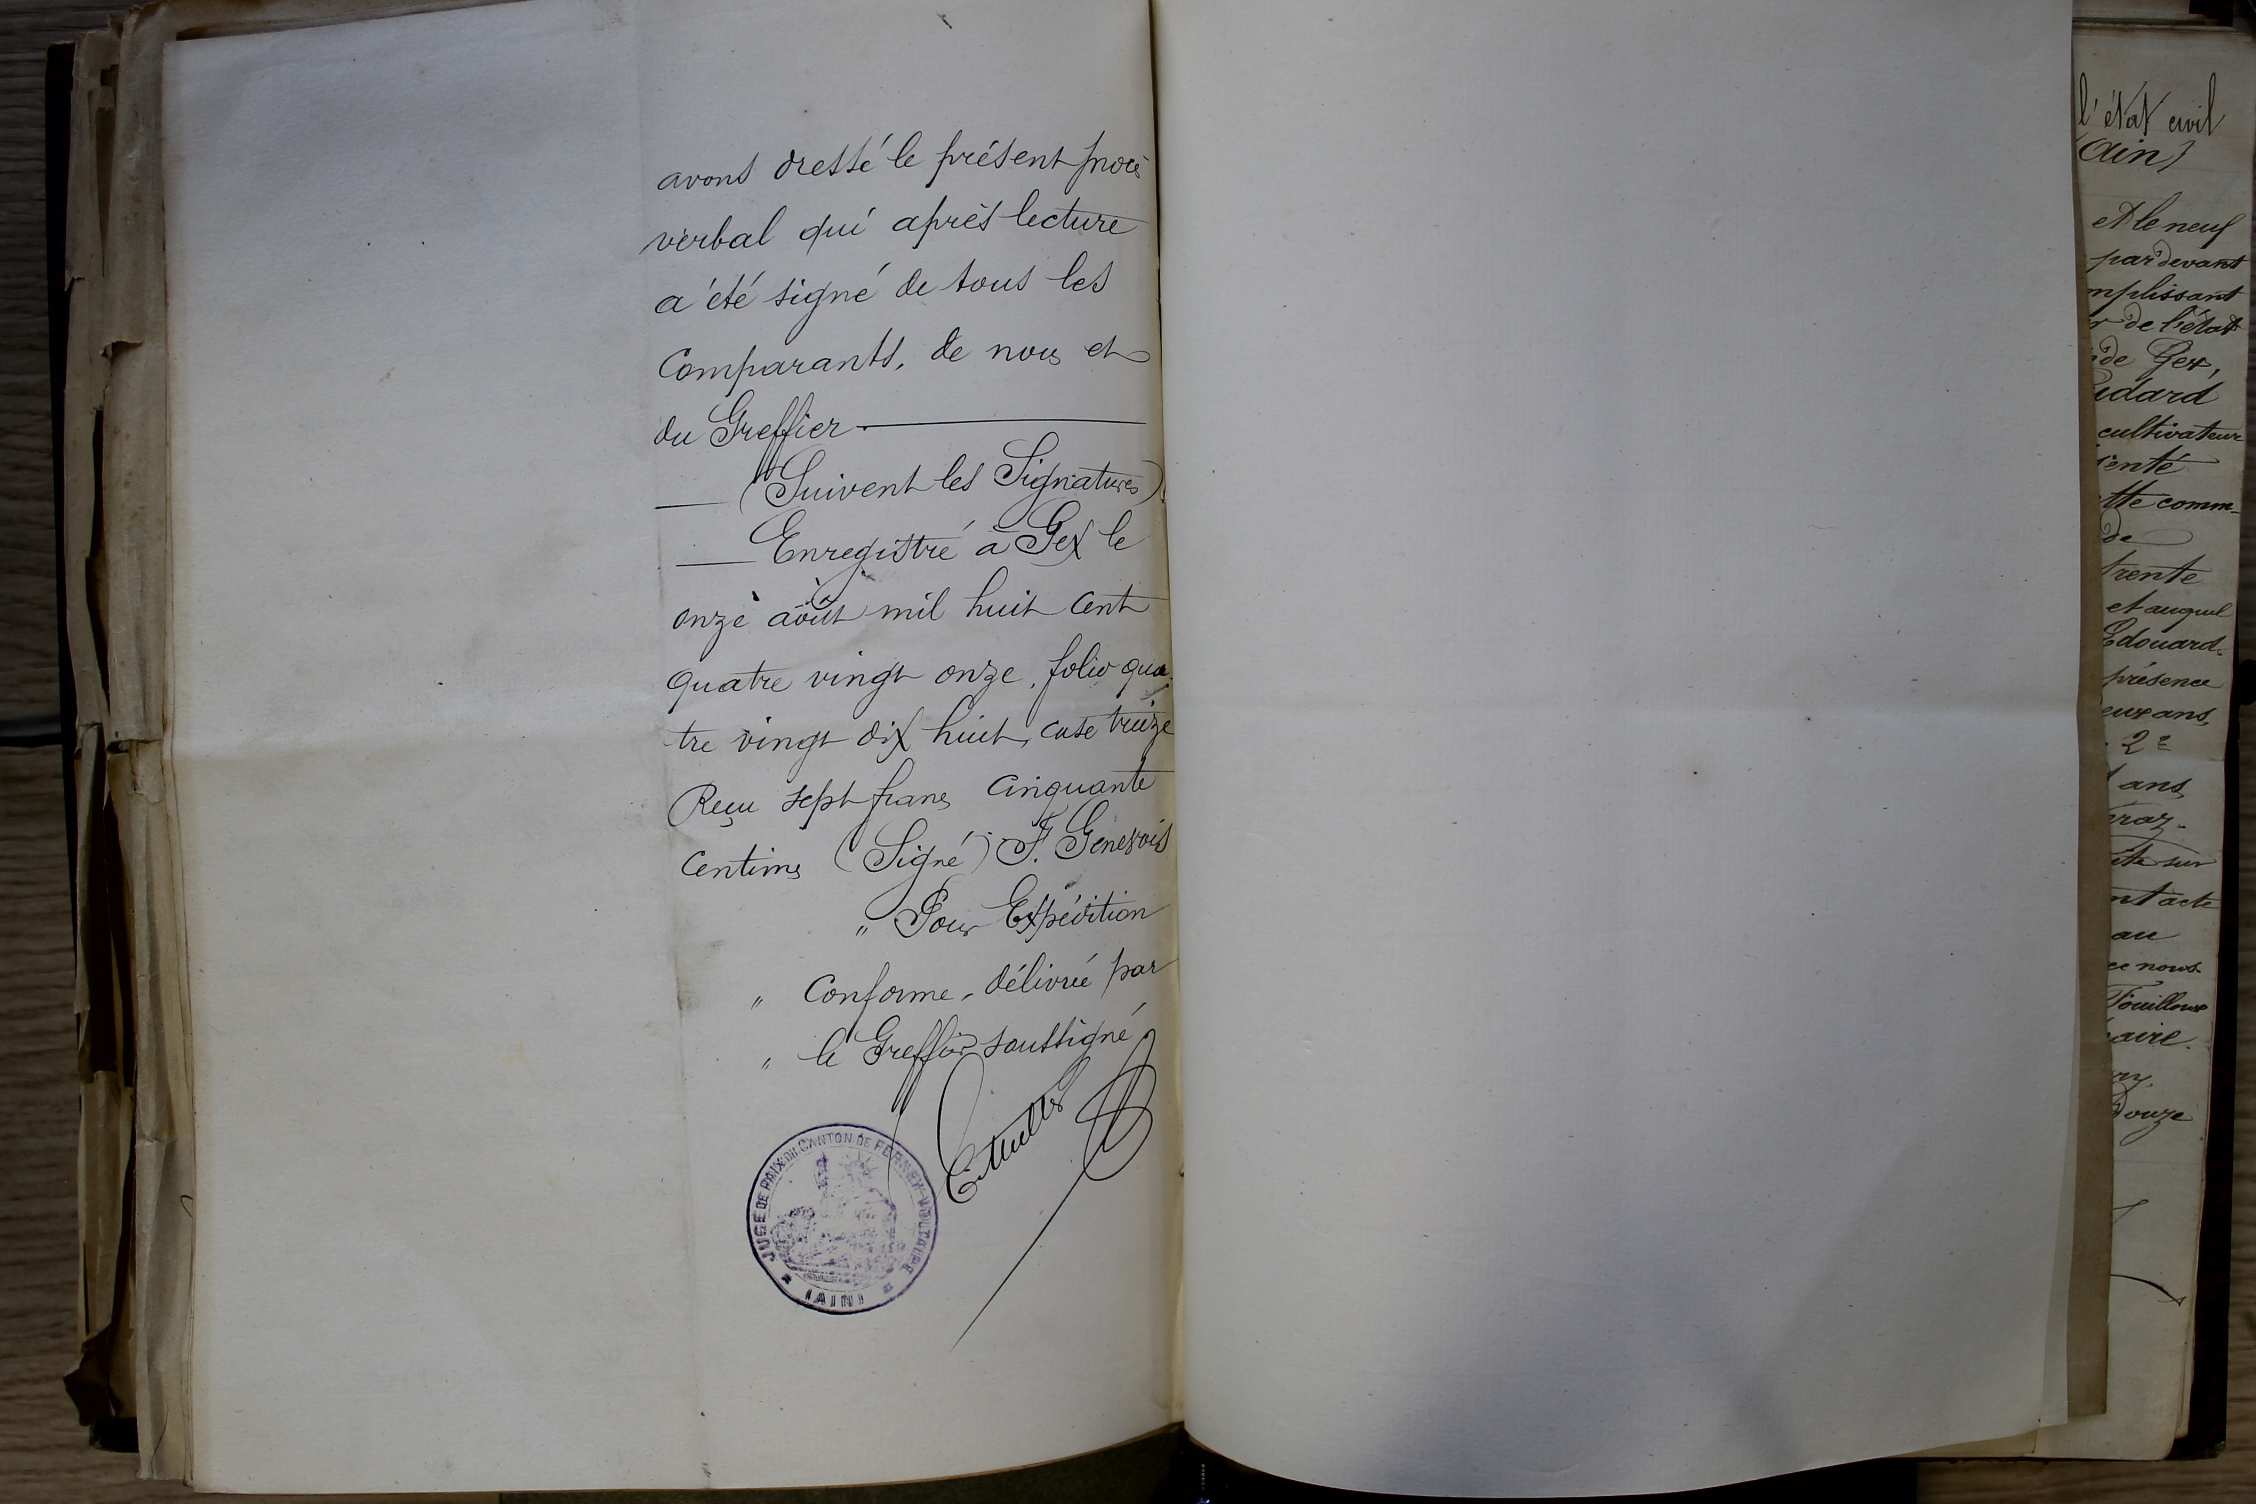 avons dressé le présent procès
verbal qui après lecture
a été signé de tous les
comparants, de nous et
du Greffier
(Suivent les Signatures)
Enregistré à Gex le
onze août mil huit cent
quatre vingt onze, folio qua
tre vingt dix huit, case treize
Reçu sept francs cinquante
centimes (Signé) F. Genevois
" Pour Expédition
" Conforme, délivrée par
" le Greffier soussigné
JUGE DE PAIX DU CANTON DE FERNEY-VOLTAIRE
(AIN)
l'état civil
(Ain)
et le neuf
pardevant
mplissant
r de l'état
de Gex,
udard
cultivateur
senté
tte comm-
de
trente
et auquel
Edouard
présence
eux ans,
2e
ans
raz.
ite sur
nt acte
au
ce nous
Fouilloux
aire.
ry.
douze